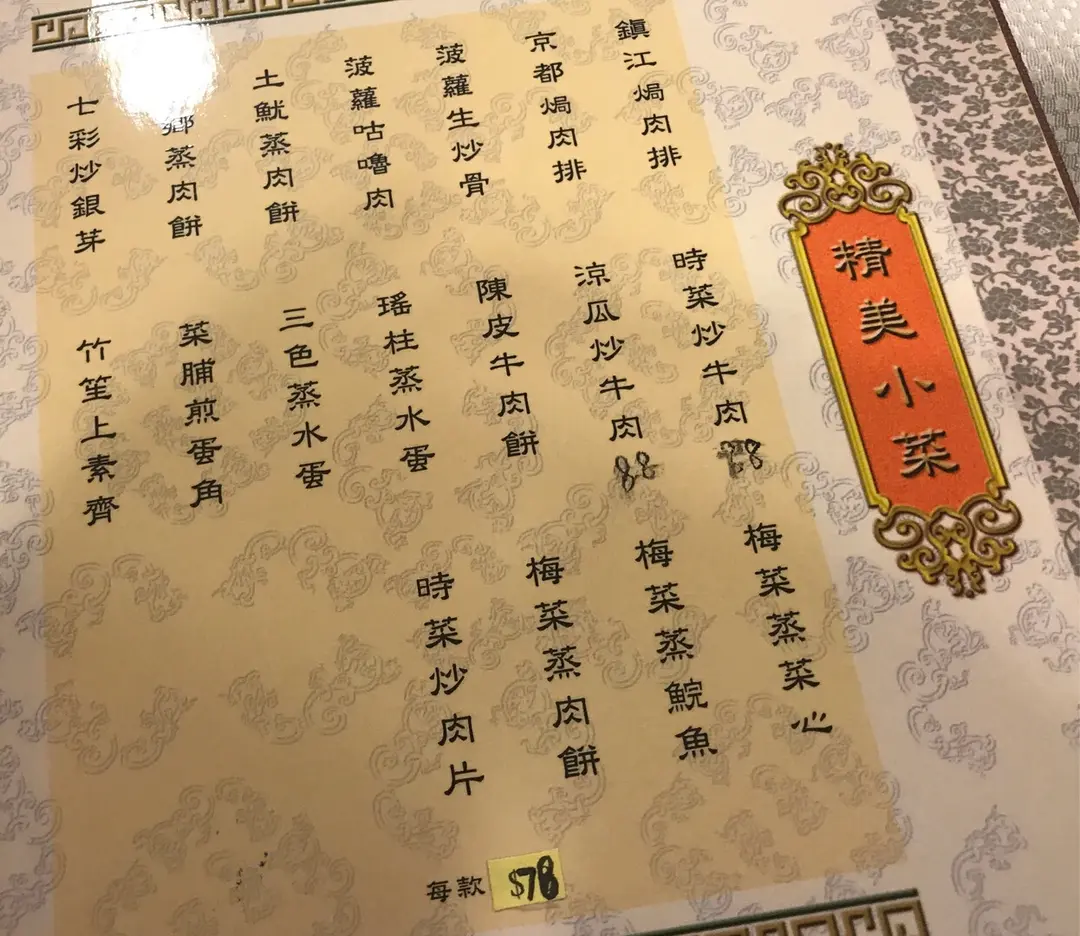 精美小菜
鎮江焗肉排
京都焗肉排
菠蘿生炒骨
菠蘿咕嚕肉
土魷蒸肉餅
鄉蒸肉餅
七彩炒銀芽
時菜炒牛肉 88
涼瓜炒牛肉 88
陳皮牛肉餅
瑤柱蒸水蛋
三色蒸水蛋
菜脯煎蛋角
竹笙上素齊
梅菜蒸菜心
梅菜蒸鯇魚
梅菜蒸肉餅
時菜炒肉片
每款 $78